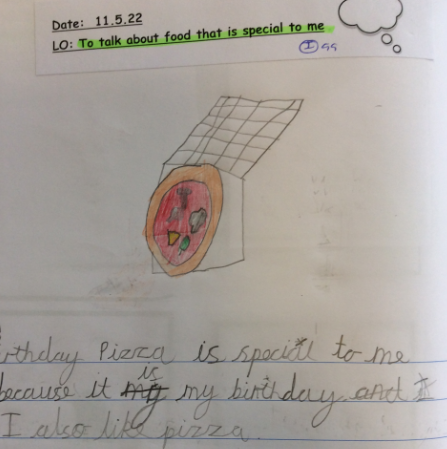 Date: 11.5.22
LO: To talk about food that is special to me
I
rthday Pizza is special to me
because it my is my birthday and I
I also like pizza.